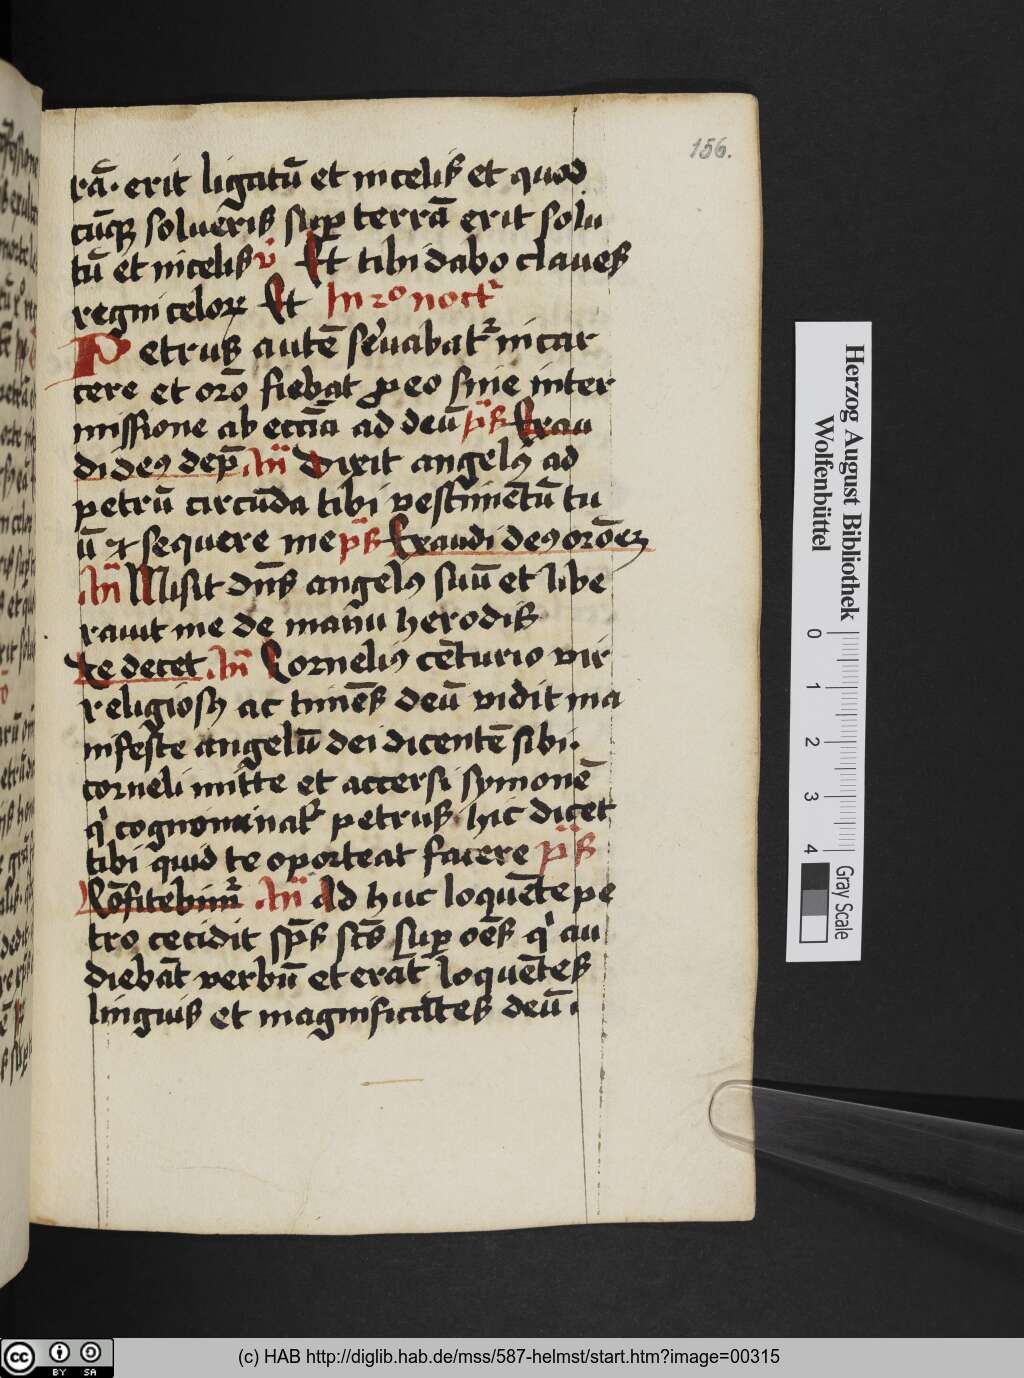 156.
rā. erit ligatū et in celis et quod
cūqꝫ solueris suꝑ terrā erit solu
tū et in celis v̉ Et tibi dabo claues
regni celoꝝ Et In 2º noctꝰ
Petrus autē seruabatᷣ in car
cere et orō fiebat ꝓ eo sine inter
missione ab eccīa ad deū p̄s Exau
di deꝰ dep̄ An̄ Dixit angelꝰ ad
petrū circūda tibi vestimētū tu
ū et sequere me p̄s Exaudi deꝰ orōem
An̄ Misit dn̄s angelꝰ suū et libe
rauit me de manu herodis
te decet An̄ Cornelius cēturio vir
religiosꝰ ac timēs deū vidit ma
nifeste angelū dei dicentē sibi.
corneli mitte et accersi symonē
q̇ cognominatᷣ petrus. hic dicet
tibi quid te oporteat facere p̄s
Cōfitebimᷣ An̄ Ad huc loquēte pe
tro cecidit sp̄s sc̄s suꝑ oēs q̇ au
diebāt verbū et erāt loquētes
linguis et magnificātes deū.
Herzog August Bibliothek
Wolfenbüttel
0 1 2 3 4
Gray Scale
(c) HAB http://diglib.hab.de/mss/587-helmst/start.htm?image=00315
cc BY SA